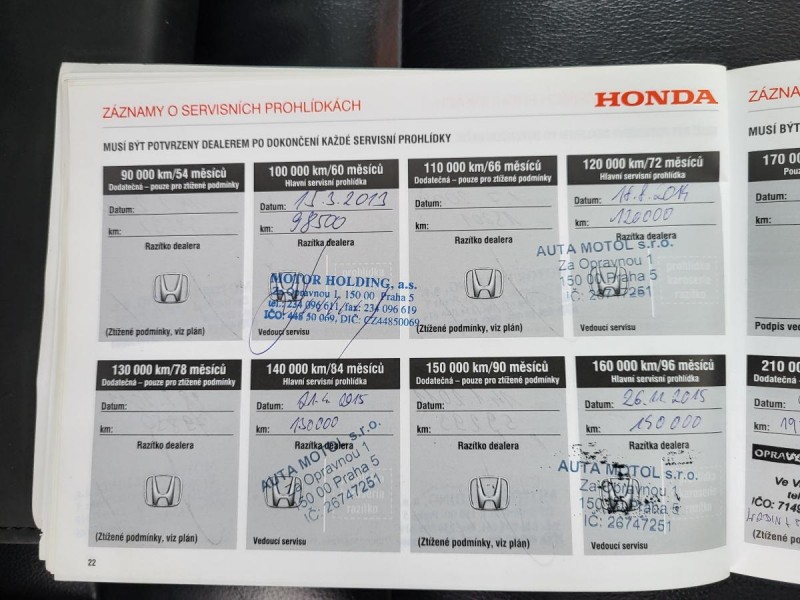 ZÁZNAMY O SERVISNÍCH PROHLÍDKÁCH
HONDA
MUSÍ BÝT POTVRZENY DEALEREM PO DOKONČENÍ KAŽDÉ SERVISNÍ PROHLÍDKY
90 000 km/54 měsíců
Dodatečná – pouze pro ztížené podmínky
Datum:
km:
Razítko dealera
(Ztížené podmínky, viz plán)
100 000 km/60 měsíců
Hlavní servisní prohlídka
Datum: 15.3.2013
km: 98500
Razítka dealera
MOTOR HOLDING, a.s.
Za Opravnou 1, 150 00 Praha 5
tel.: 234 096 611, fax: 234 096 619
IČO: 448 50 069, DIČ: CZ44850069
Vedoucí servisu
110 000 km/66 měsíců
Dodatečná – pouze pro ztížené podmínky
Datum:
km:
Razítko dealera
(Ztížené podmínky, viz plán)
120 000 km/72 měsíců
Hlavní servisní prohlídka
Datum: 18.8.2014
km: 120000
Razítka dealera
AUTA MOTOL s.r.o.
Za Opravnou 1
150 00 Praha 5
IČ: 26747251
Vedoucí servisu
130 000 km/78 měsíců
Dodatečná – pouze pro ztížené podmínky
Datum:
km:
Razítko dealera
(Ztížené podmínky, viz plán)
140 000 km/84 měsíců
Hlavní servisní prohlídka
Datum: 21.4.2015
km: 130000
Razítka dealera
AUTA MOTOL s.r.o.
Za Opravnou 1
150 00 Praha 5
IČ: 26747251
Vedoucí servisu
150 000 km/90 měsíců
Dodatečná – pouze pro ztížené podmínky
Datum:
km:
Razítko dealera
(Ztížené podmínky, viz plán)
160 000 km/96 měsíců
Hlavní servisní prohlídka
Datum: 26.11.2015
km: 150000
Razítka dealera
AUTA MOTOL s.r.o.
Za Opravnou 1
150 00 Praha 5
IČ: 26747251
Vedoucí servisu
22
ZÁZNA
MUSÍ BÝT
170 0
Datum:
km:
Podpis ve
210 0
Datum:
km:
OPRAV
Ve V
tel
IČO: 7149
(Ztížené